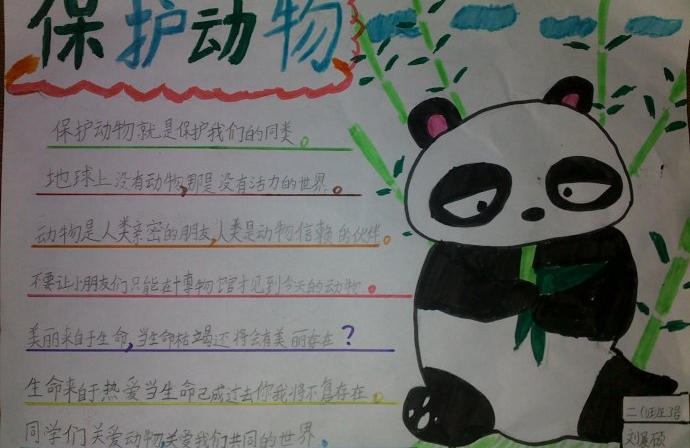 保护动物
保护动物就是保护我们的同类。
地球上没有动物,那是没有活力的世界。
动物是人类亲密的朋友,人类是动物信赖的伙伴。
不要让小朋友们只能在博物馆才见到今天的动物。
美丽来自于生命,当生命枯竭还将会有美丽存在?
生命来自于热爱当生命已成过去你我将不复存在。
同学们关爱动物,关爱我们共同的世界。
二(班)3号